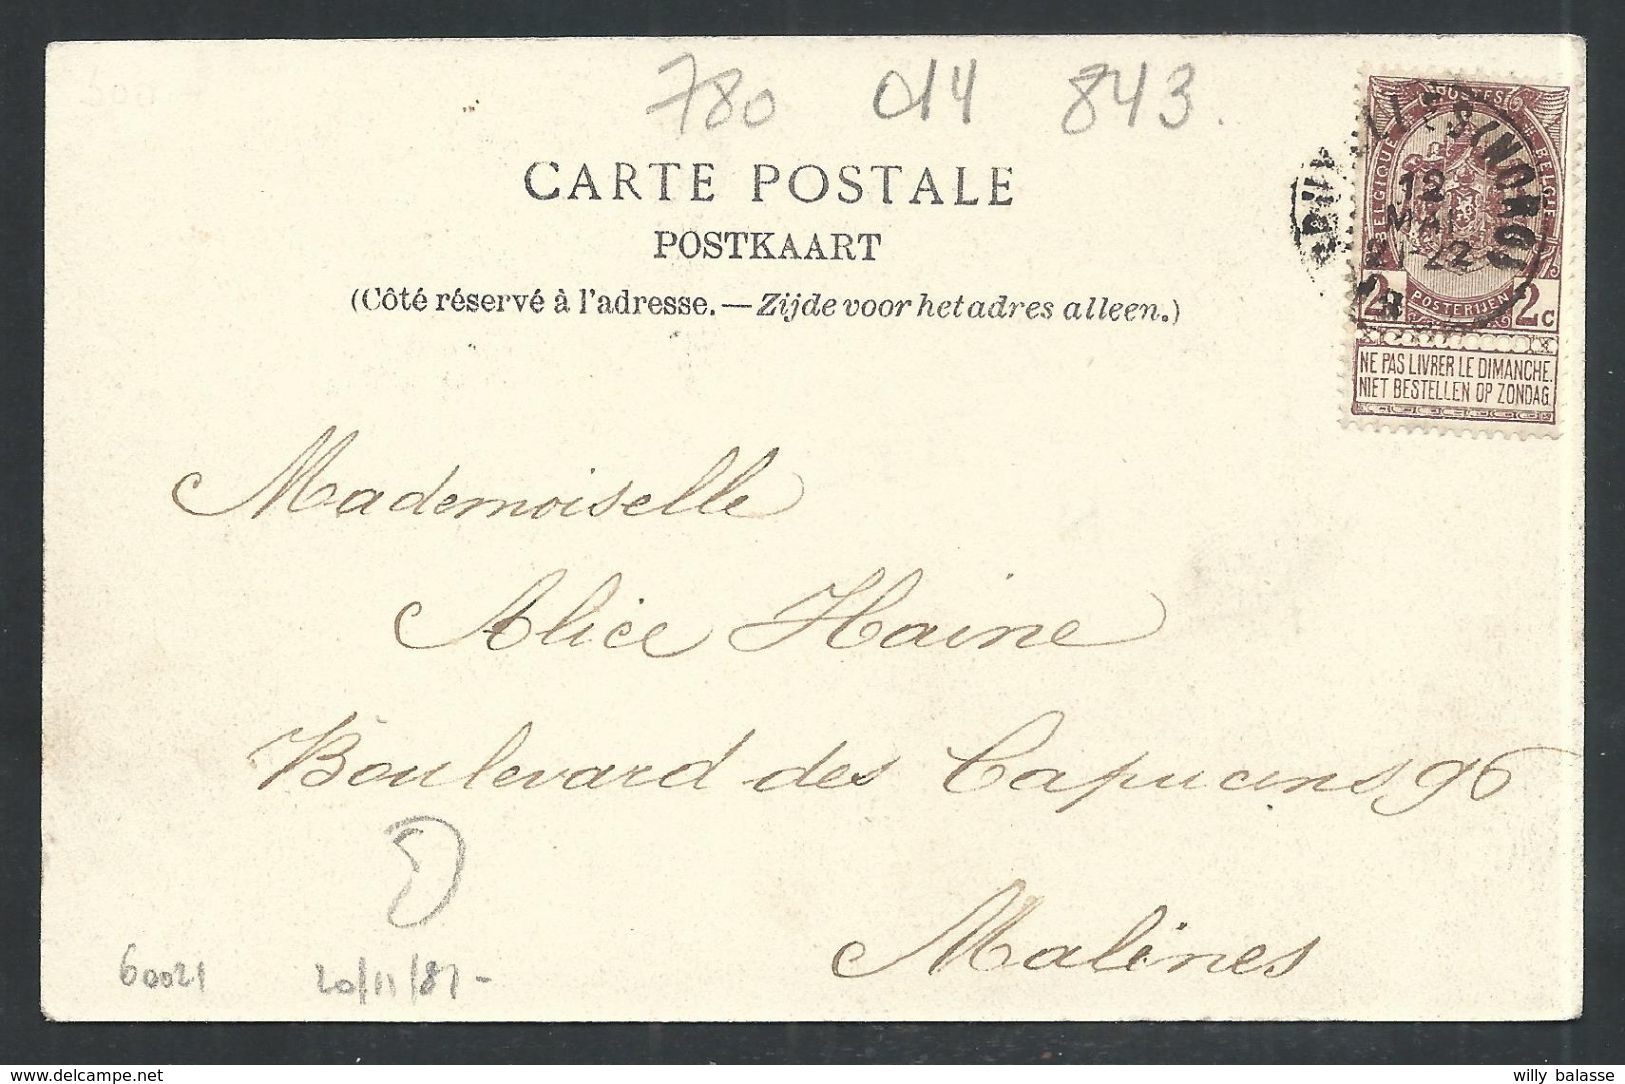 780 014 843.
CARTE POSTALE
POSTKAART
(Côté réservé à l'adresse. — Zijde voor het adres alleen.)
BELGIQUE
BELGIE
12
MAI
21-22
(NORD)
POSTERIJEN
2 2c
NE PAS LIVRER LE DIMANCHE.
NIET BESTELLEN OP ZONDAG.
Mademoiselle
Alice Haine
Boulevard des Capucins 96
Malines
60021
20/11/81-
willy balasse